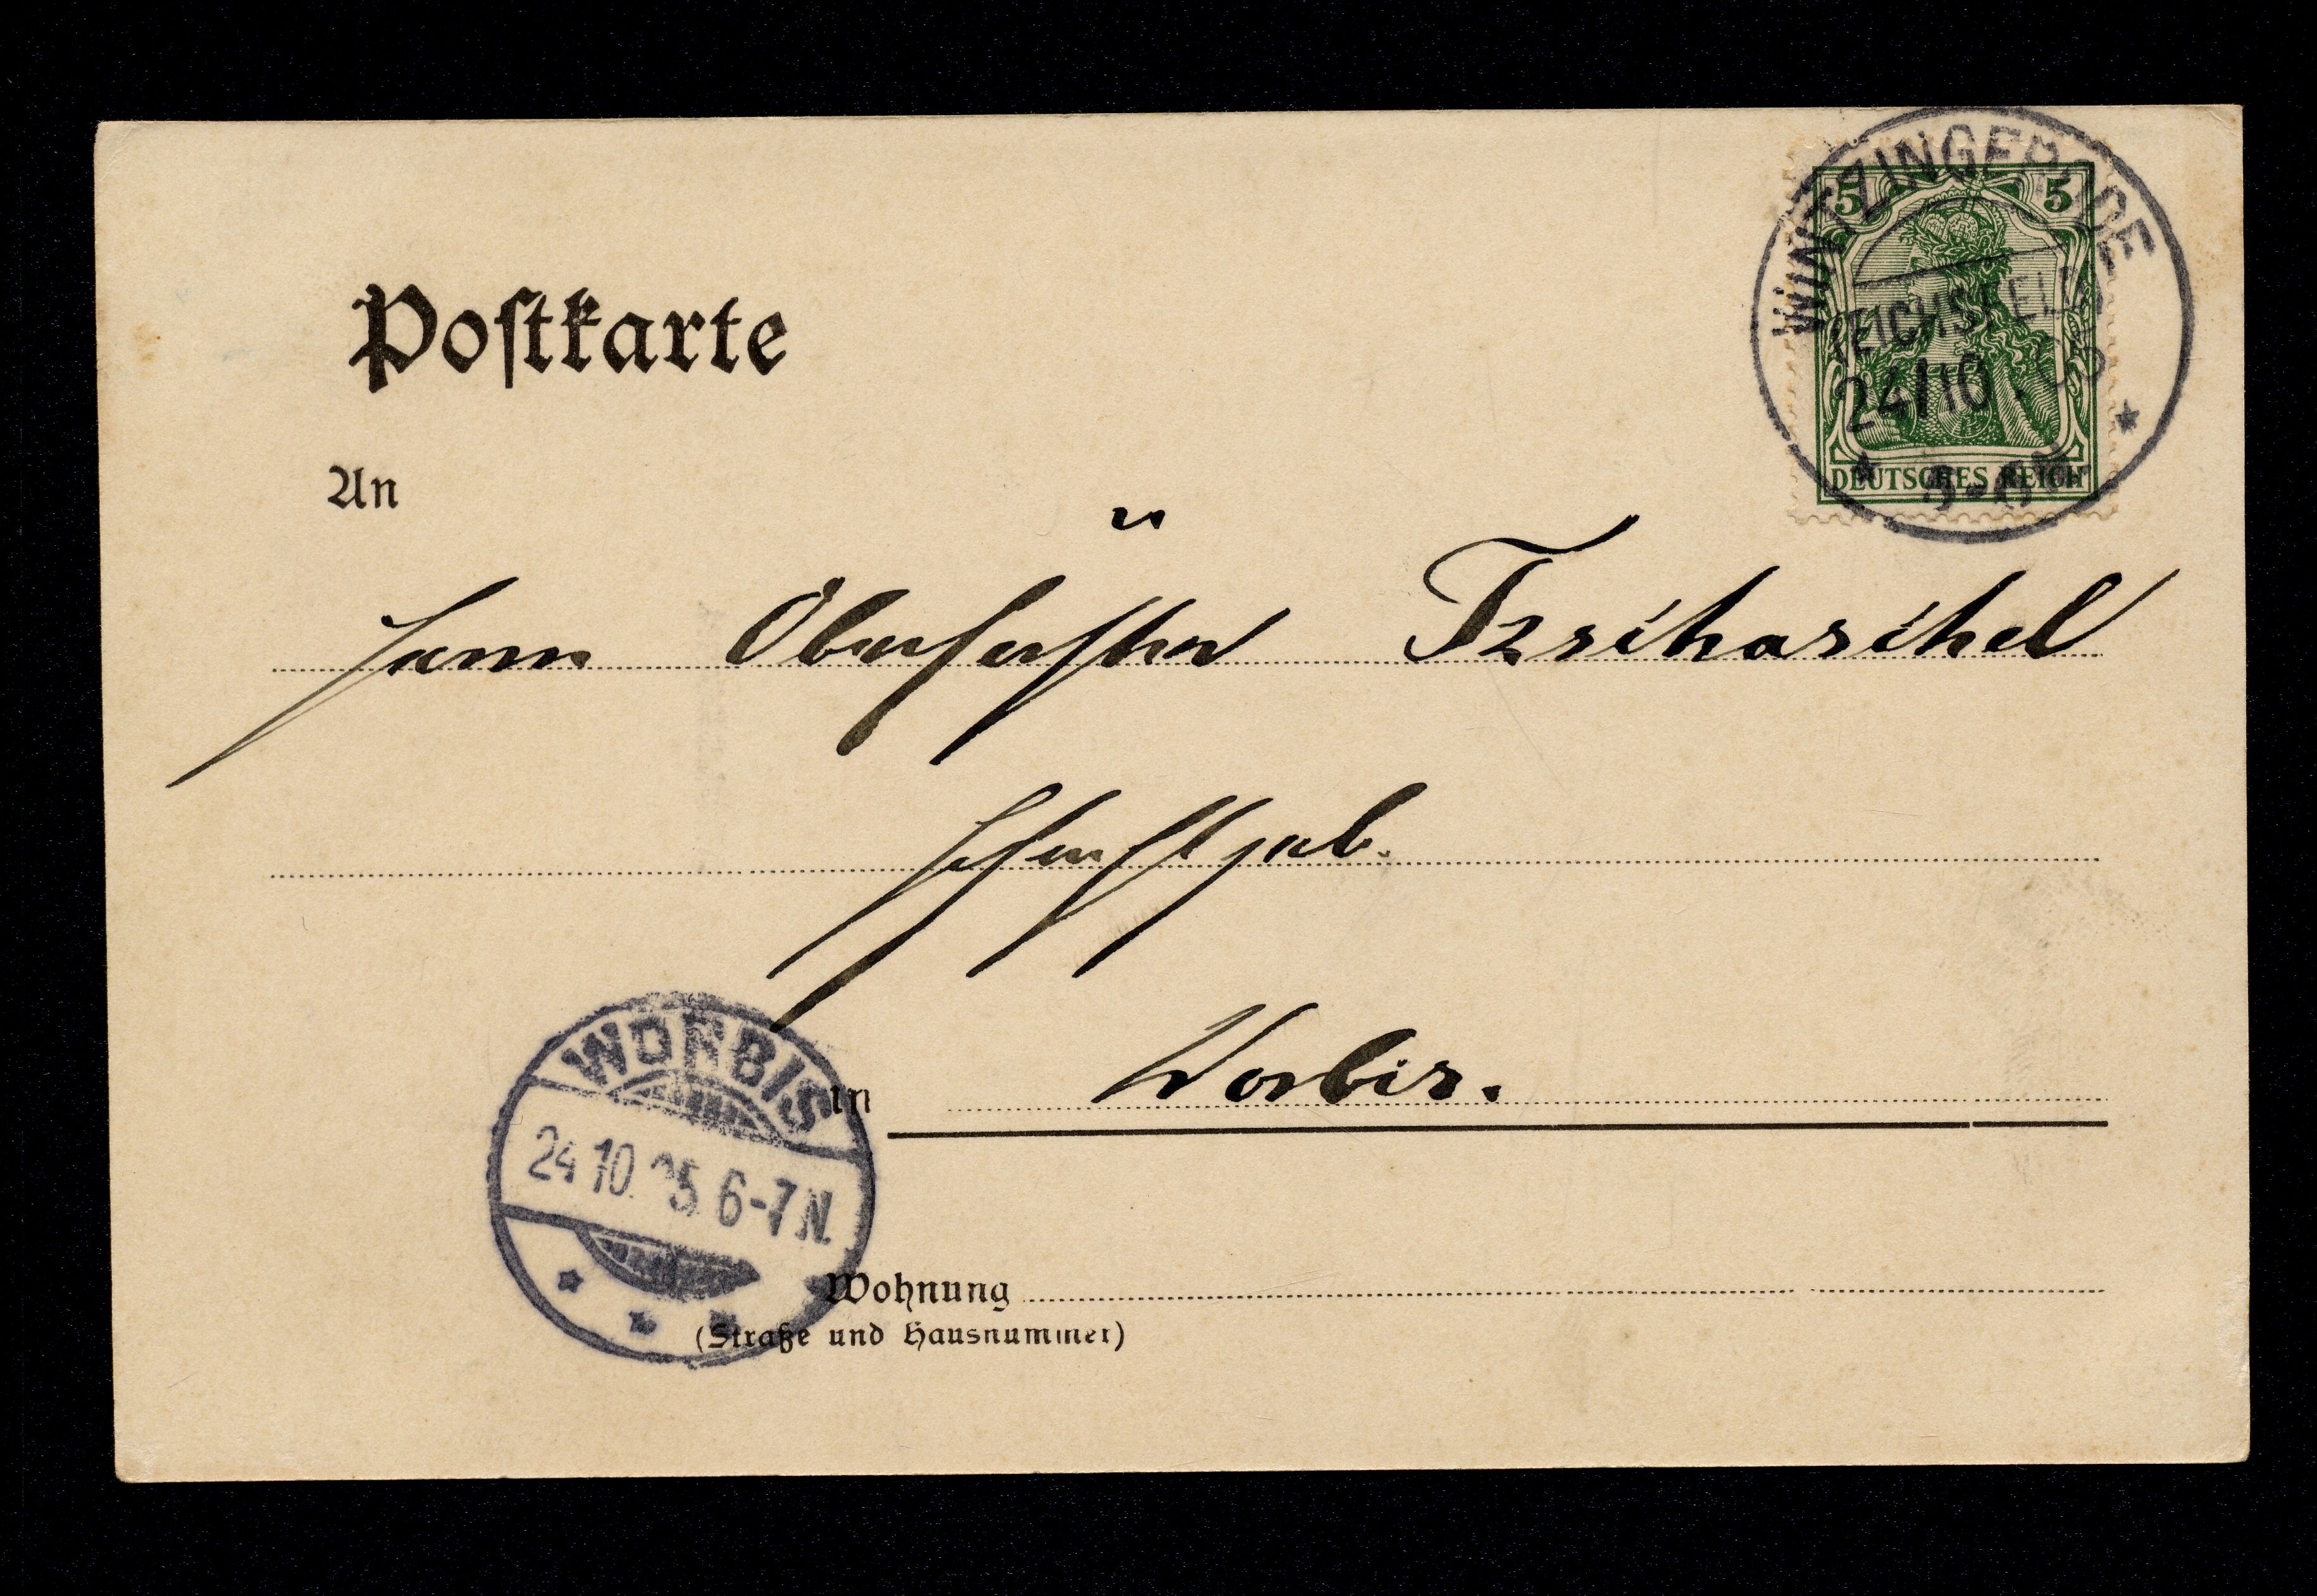 WINTZINGERODE
(EICHSFELD)
24/10 05
5 5
DEUTSCHES REICH
Postkarte
An
Herrn Oberförster Tzschaschel
in Worbis.
WORBIS
24 10. 05. 6-7 N.
Wohnung
(Straße und Hausnummer)